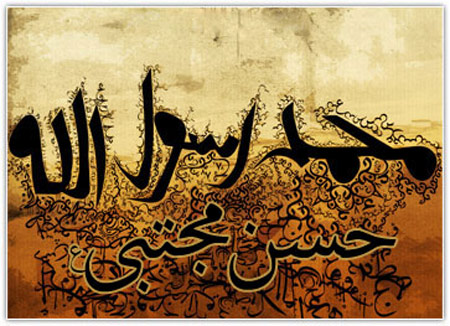 محمد رسول الله
حسن مجتبی ع